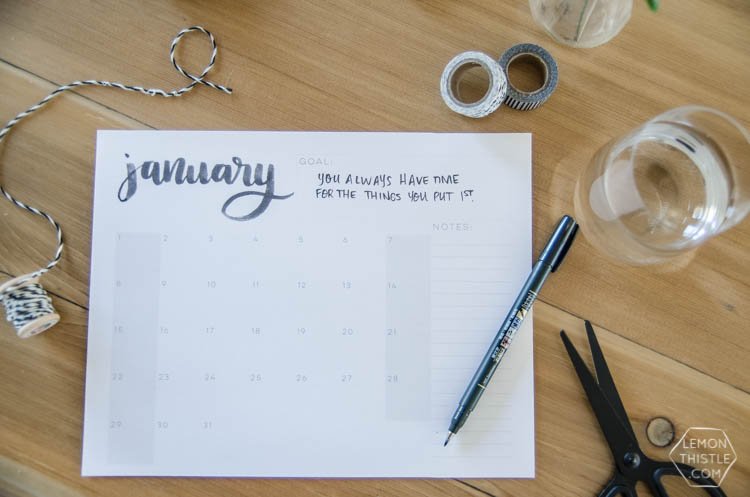 january
GOAL:
YOU ALWAYS HAVE TIME
FOR THE THINGS YOU PUT 1ST.
NOTES:
1 2 3 4 5 6 7
8 9 10 11 12 13 14
15 16 17 18 19 20 21
22 23 24 25 26 27 28
29 30 31
LEMON
THISTLE
.COM